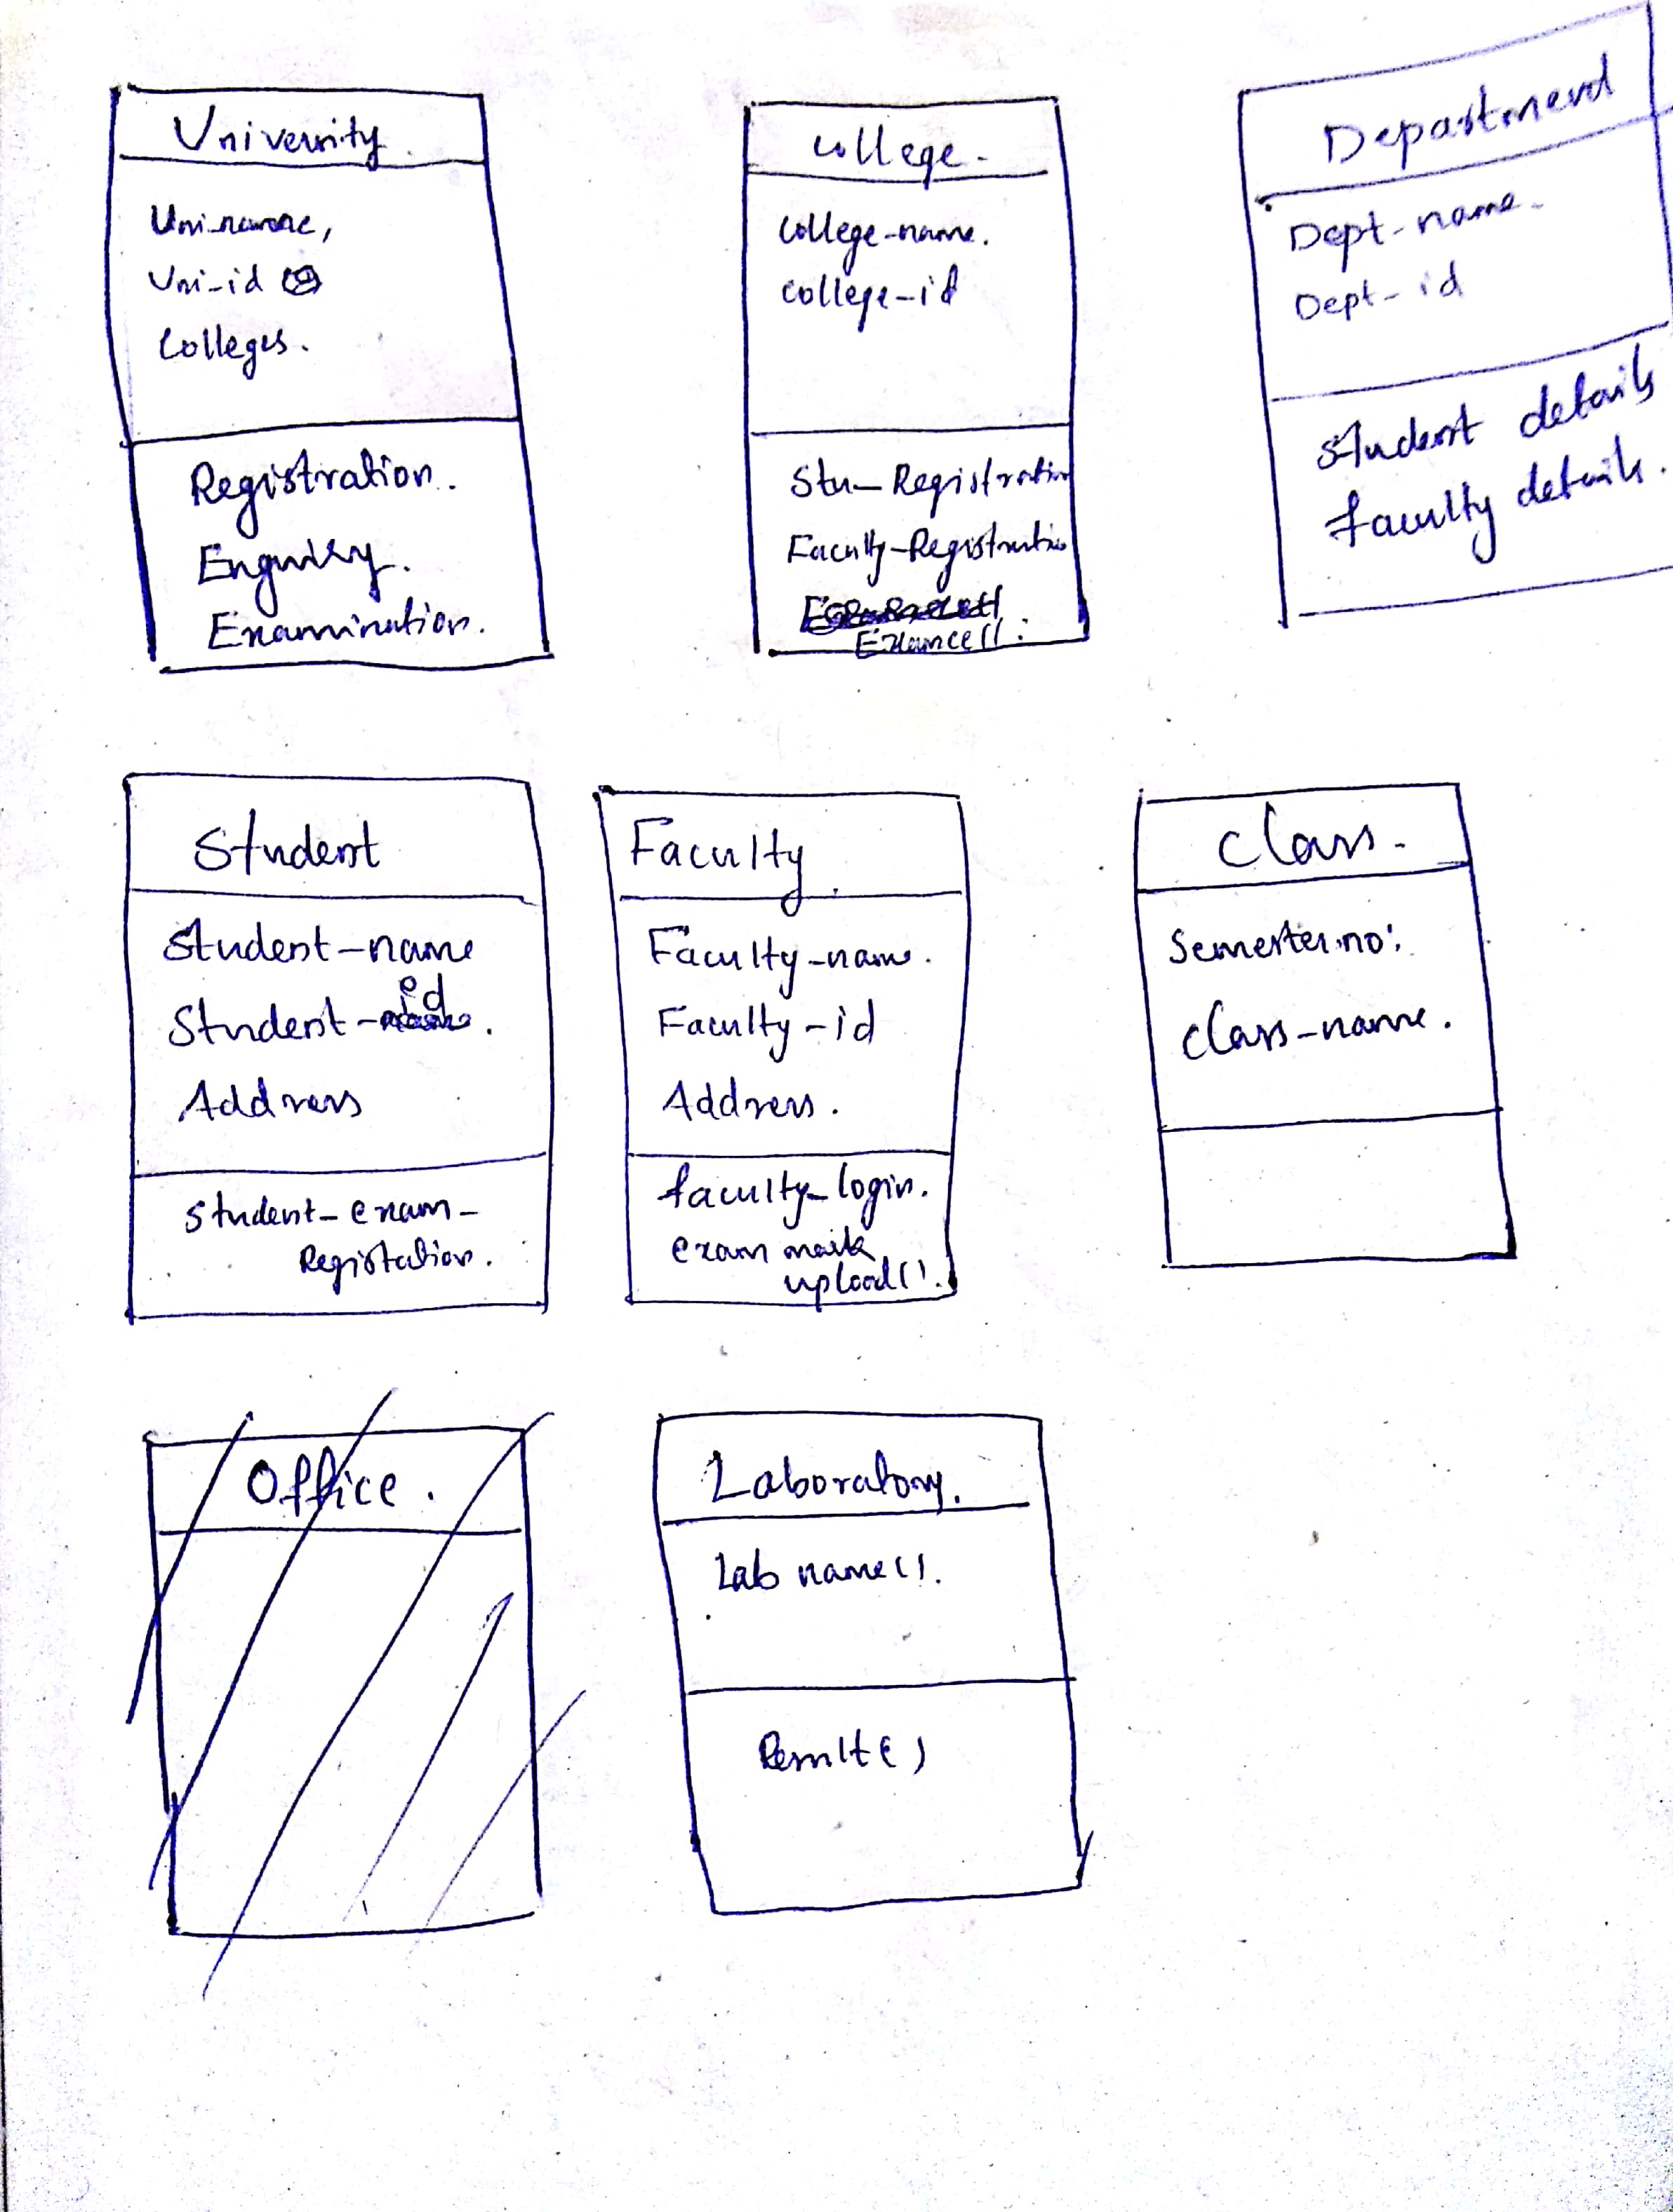 University.
Uni-name,
Uni-id
Colleges.
Registration.
Enquiry.
Examination.
College.
College-name.
College-id
Stu-Registration
Faculty-Registration
Department
Dept-name.
Dept-id
Student details
faculty details.
Student
Student-name
Student-id.
Address
Student-exam-
Registation.
Faculty
Faculty-name.
Faculty-id
Address.
faculty-login.
exam mark
upload().
Class.
Semester.no:
Class-name.
Office.
Laboratory.
Lab name().
Result()